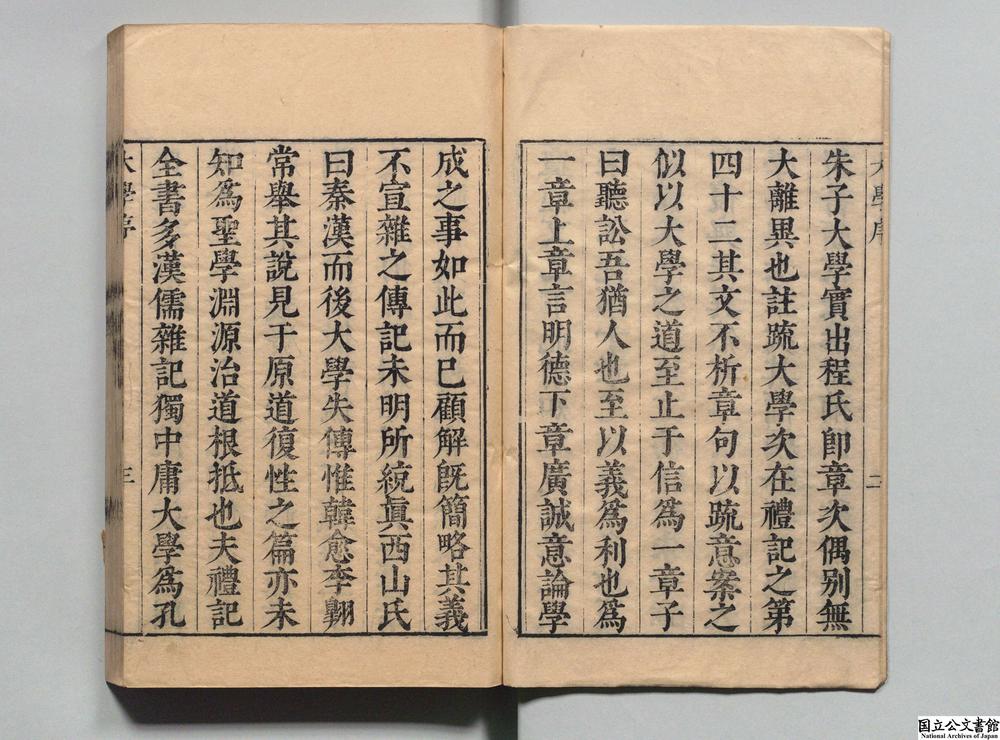 大學序
二
朱子大學實出程氏卽章次偶别無
大離異也註疏大學次在禮記之第
四十二其文不析章句以疏意案之
似以大學之道至止于信爲一章子
曰聽訟吾猶人也至以義爲利也爲
一章上章言明德下章廣誠意論學
成之事如此而已顧解旣簡略其義
不宣雜之傳記未明所統眞西山氏
曰秦漢而後大學失傳惟韓愈李翺
常舉其說見于原道復性之篇亦未
知爲聖學淵源治道根抵也夫禮記
全書多漢儒雜記獨中庸大學爲孔
大學序
三
国立公文書館
National Archives of Japan